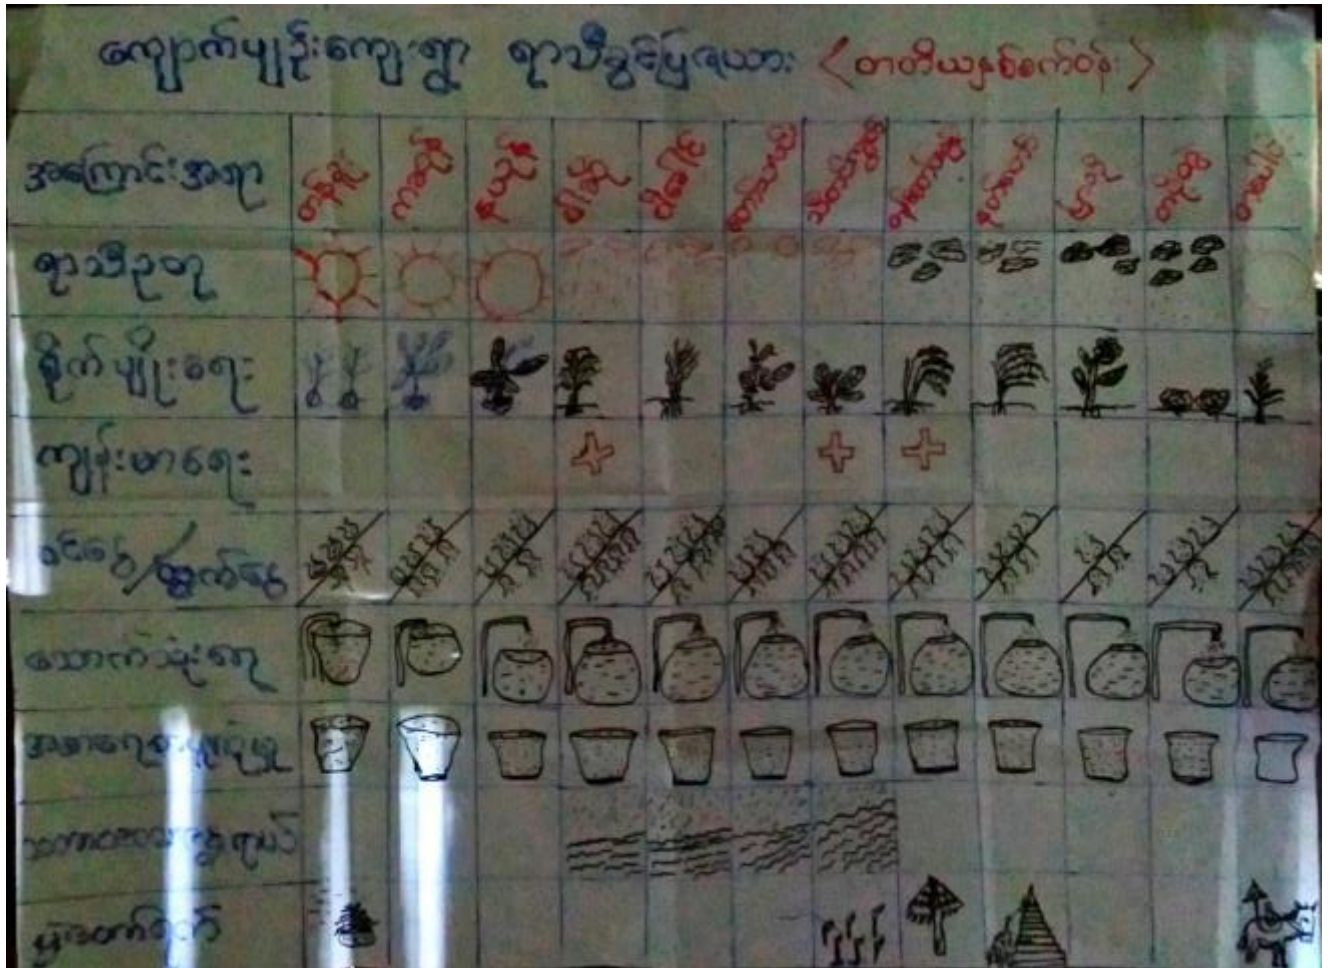 ကျောက်မျဉ်းကျေးရွာ ရာသီခွင်ပြဇယား <တတိယနှစ်စက်ဝန်း>
အကြောင်းအရာ တန်ခူး ကဆုန် နယုန် ဝါဆို ဝါခေါင် တော်သလင်း သီတင်းကျွတ် တန်ဆောင်မုန်း နတ်တော် ပြာသို တပို့တွဲ တပေါင်း
ရာသီဥတု
စိုက်ပျိုးရေး
ကျန်းမာရေး
ဝင်ငွေ/ထွက်ငွေ
သောက်သုံးရေ